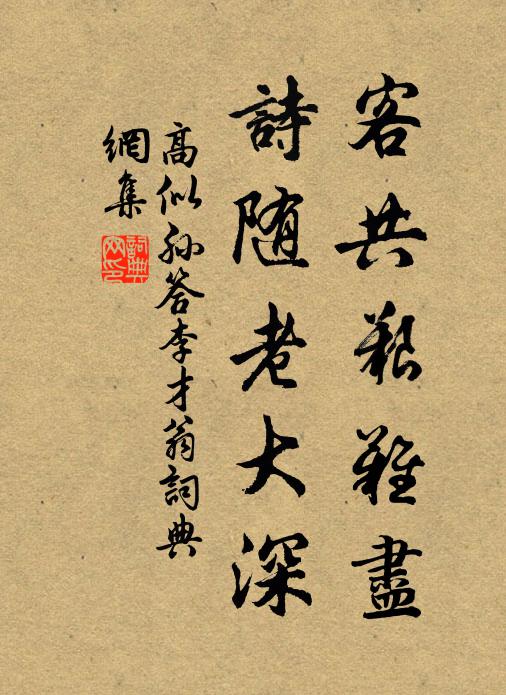 客共艱難盡
詩随老大深
高似孫答李才翁詞典
網集
詞典
网印